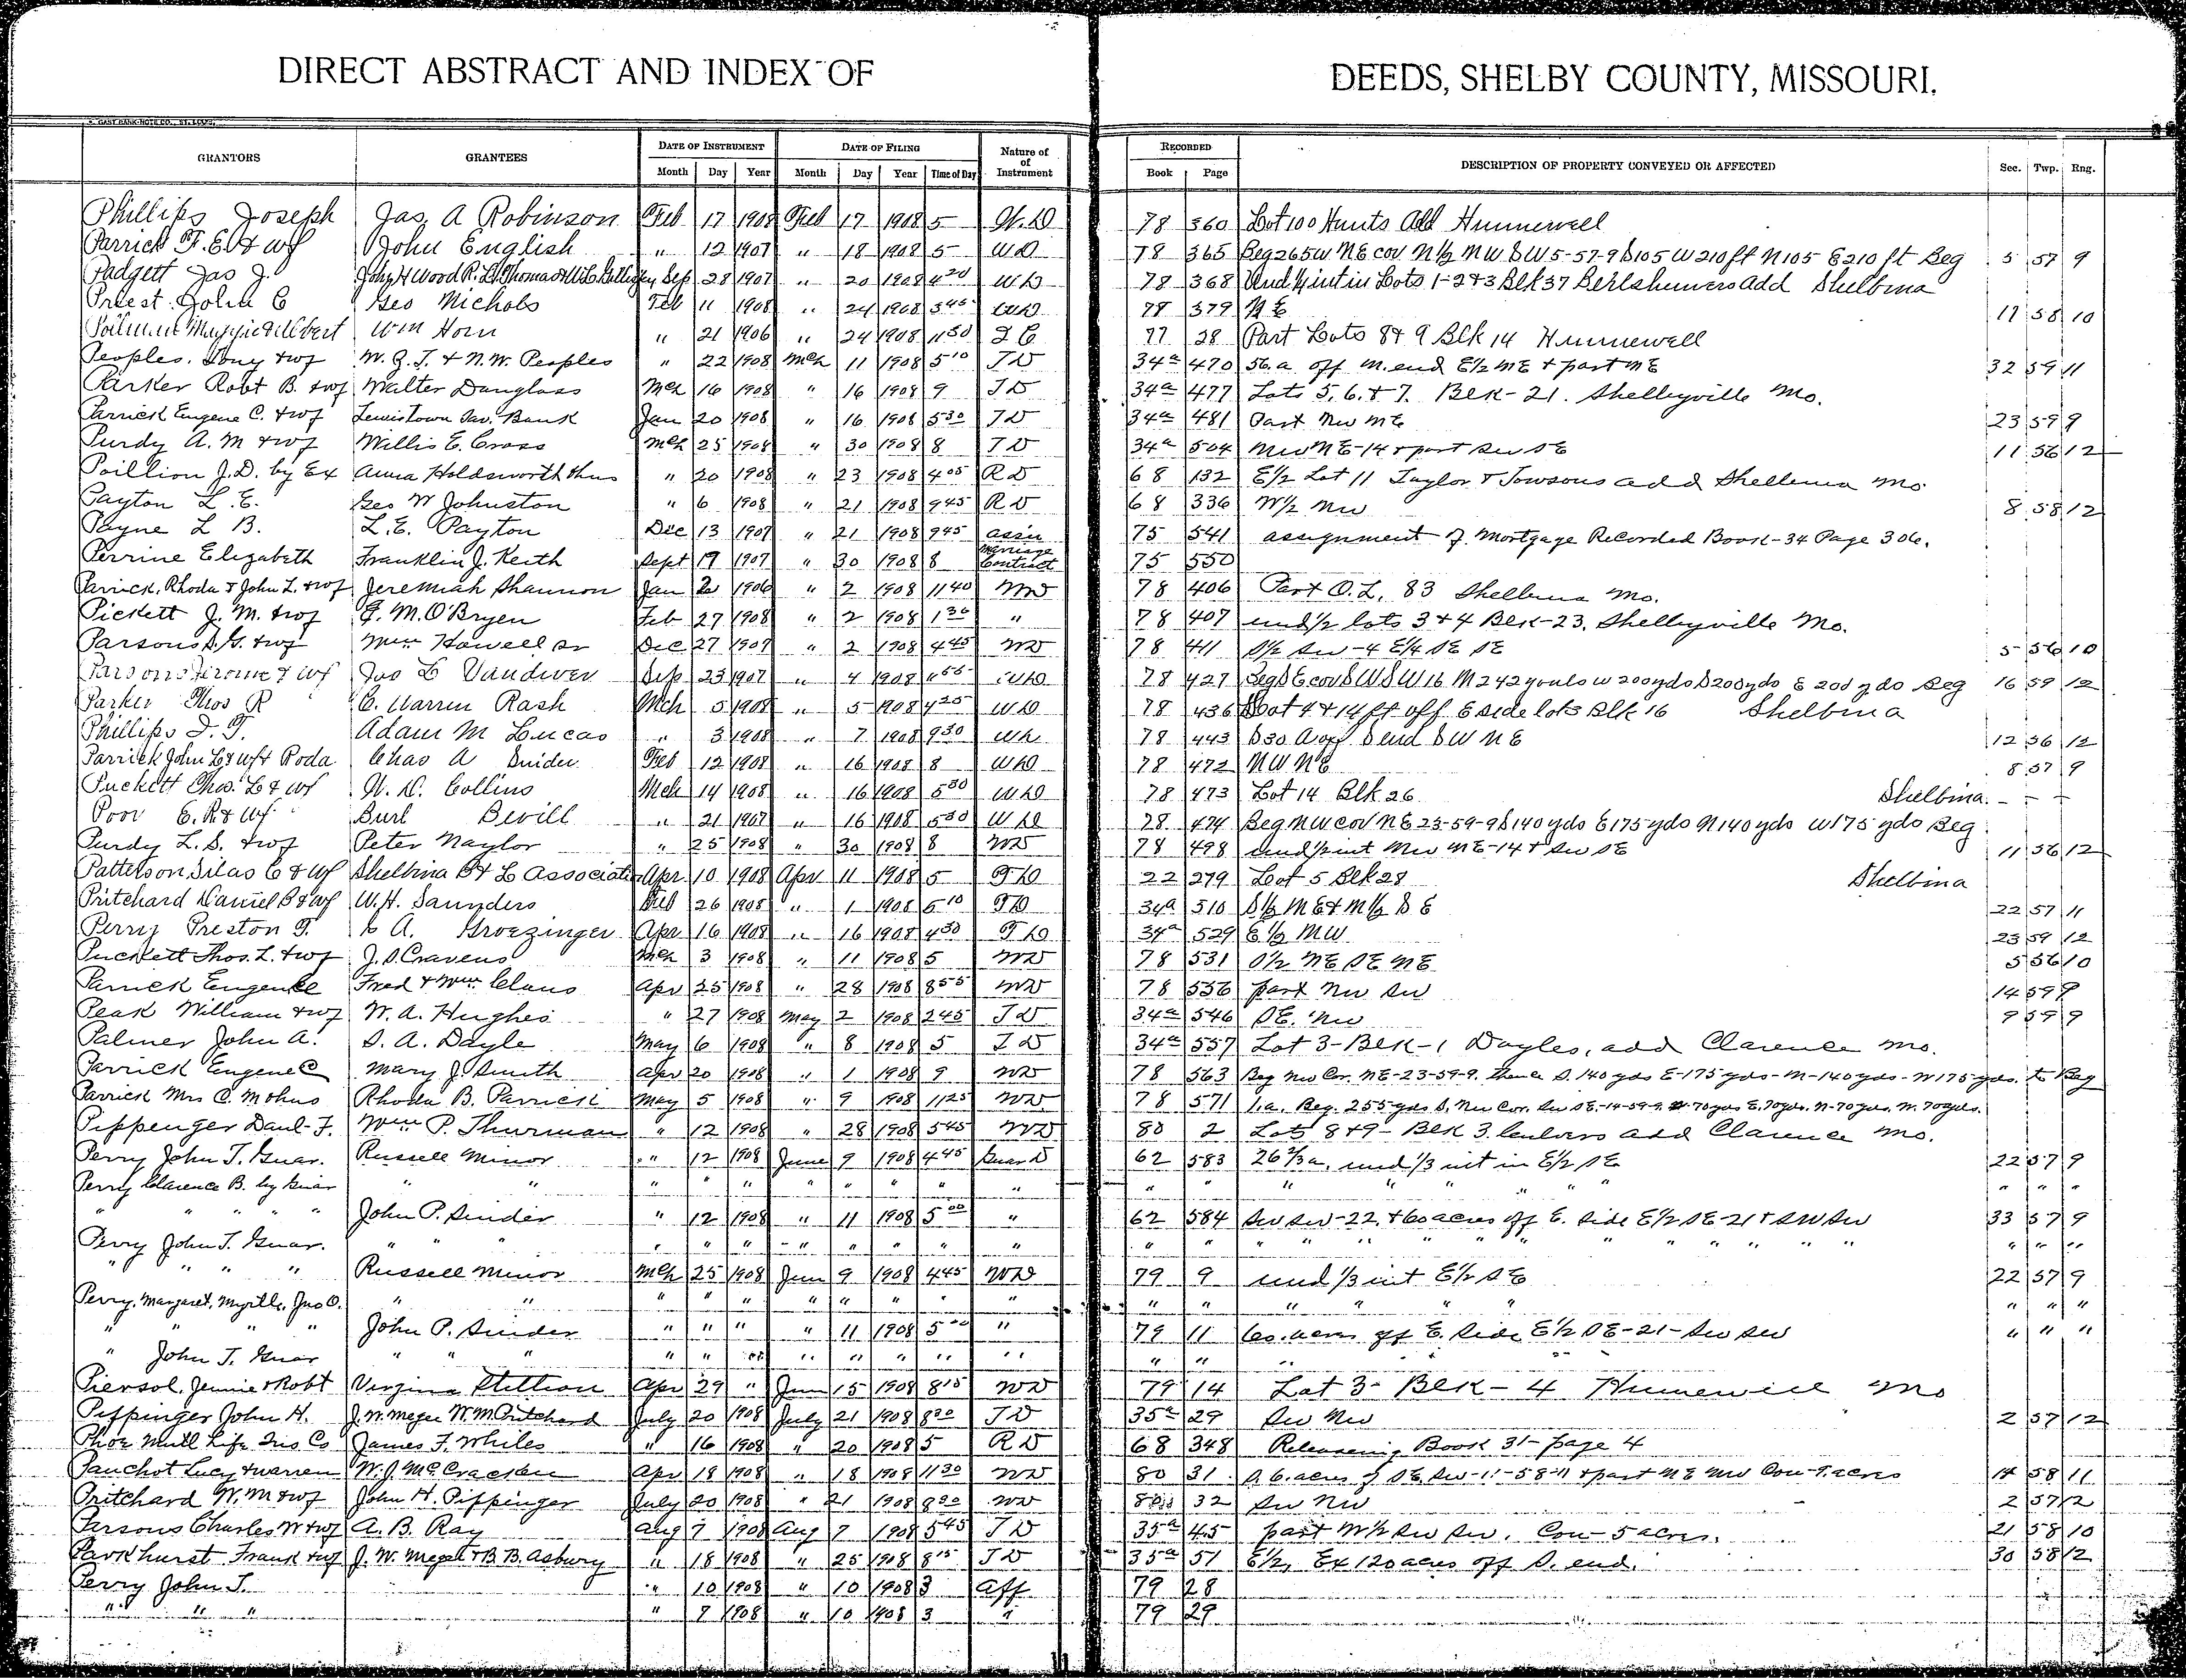 DIRECT ABSTRACT AND INDEX OF DEEDS, SHELBY COUNTY, MISSOURI.
GAST BANK NOTE CO., ST. LOUIS.
GRANTORS GRANTEES DATE OF INSTRUMENT DATE OF FILING Nature of of Instrument RECORDED DESCRIPTION OF PROPERTY CONVEYED OR AFFECTED Sec. Twp. Rng.
Month Day Year Month Day Year Time of Day Book Page
Phillips Joseph Jas. A Robinson Feb 17 1908 Feb 17 1908 5 W.D 78 360 Lot 100 Hunts Add Hunnewell
Parrick F. E. & wf John English " 12 1907 " 18 1908 5 WD 78 365 Beg 265 W NE cor N½ NW SW 5-57-9 S105 W 210 ft N105 E210 ft Beg 5 57 9
Padgett Jas J. John H Wood R. L. Thomas & W.L. Sep 28 1907 " 20 1908 4 20 WD 78 368 Und ½ int in Lots 1-2 & 3 Blk 37 add Shelbina
Priest John C Geo Nichols Feb 11 1908 " 24 1908 3 45 WD 78 379 NE 17 58 10
Wm Horn " 21 1906 " 24 1908 11 30 77 28 Part Lots 8 & 9 Blk 14 Hunnewell
Peoples. Tony & wf W. G. T. & N. W. Peoples " 22 1908 Mch 11 1908 5 10 TD 34a 470 56. a off N. end E½ NE + part NE 32 59 11
Parker Robt B. & wf Walter Douglass Mch 16 1908 " 16 1908 9 TD 34a 477 Lots 5, 6. & 7. Blk-21. Shelbyville Mo.
Parrick Eugene C. & wf Lewistown Sav. Bank Jan 20 1908 " 16 1908 5 30 TD 34a 481 Part NW NE 23 59 9
Purdy A. M & wf Willis E. Cross Mch 25 1908 " 30 1908 8 TD 34a 504 NW NE-14 + part SW SE 11 56 12
Poillion J. D. by Ex Anna Holdsworth & hus " 20 1908 " 23 1908 4 05 RD 68 132 E½ Lot 11 Taylor & Towsons add Shelbina Mo.
Payton L. E. Geo W Johnston " 6 1908 " 21 1908 9 45 RD 68 336 W½ NW 8 58 12
Payne L B. L. E. Payton Dec 13 1907 " 21 1908 9 45 assn 75 541 assignment of Mortgage Recorded Book-34 Page 306.
Perrine Elizabeth Franklin J. Keith Sept 19 1907 " 30 1908 8 Marriage Contract 75 550
Parrick, Rhoda & John L. & wf Jeremiah Shannon Jan 2 1906 " 2 1908 11 40 WD 78 406 Part O. L. 83 Shelbina Mo.
Pickett J. M. & wf G. M. O'Bryen Feb 27 1908 " 2 1908 1 30 " 78 407 und ½ lots 3 & 4 Blk-23. Shelbyville Mo.
Parsons S. G. & wf Wm Howell Sr Dec 27 1907 " 2 1908 4 45 WD 78 411 S½ SW-4 E¼ SE SE 5 56 10
Parsons Jerome & wf Jas L Vandiver Sep 23 1907 " 4 1908 WD 78 427 Beg SE cor SW SW 16 N 242 yards W 200 yds S 200 yds E 200 yds Beg 16 59 12
Parker Thos R C. Warren Rash Mch 5 1908 " 5 1908 4 25 WD 78 436 Lot 4 & 14 ft off E side lot 3 Blk 16 Shelbina
Phillips D. T. Adam M Lucas " 3 1908 " 7 1908 9 30 WD 78 443 S 30 A off S end SW NE 12 56 12
Parrick John L & wf & Roda Chas A Snider Feb 12 1908 " 16 1908 8 WD 78 472 NW NE 8 57 9
Puckett Thos. L & wf W. D. Collins Mch 14 1908 " 16 1908 5 30 WD 78 473 Lot 14 Blk 26 Shelbina.
Poor E. R & wf Burl Bevill " 21 1907 " 16 1908 5 30 WD 78 474 Beg NW cor NE 23-59-9 S 140 yds E 175 yds N 140 yds W 175 yds Beg
Purdy L. S. & wf Peter Naylor " 25 1908 " 30 1908 8 WD 78 498 und ½ int NW NE-14 & SW SE 11 56 12
Patterson Silas C & wf Shelbina B & L Association Apr 10 1908 Apr 11 1908 5 TD 22 279 Lot 5 Blk 28 Shelbina
Pritchard Daniel B & wf W. H. Saunders Feb 26 1908 " 1 1908 5 10 TD 34a 510 S½ NE & N½ SE 22 57 11
Perry Preston T. A. Groezinger Apr 16 1908 " 16 1908 4 30 TD 34a 529 E½ NW 23 59 12
Puckett Thos. L. & wf J. S. Cravens Mch 3 1908 " 11 1908 5 WD 78 531 S½ NE SE NE 5 56 10
Parrick Eugene Fred & Wm. Claus Apr 25 1908 " 28 1908 8 55 WD 78 556 part NW SW 14 59 9
Peak William & wf W. A. Hughes " 27 1908 May 2 1908 2 45 TD 34a 546 SE. NW 9 59 9
Palmer John A. S. A. Dayle May 6 1908 " 8 1908 5 TD 34a 557 Lot 3-Blk-1 Dayles, add Clarence Mo.
Parrick Eugene C Mary J. Smith Apr 20 1908 " 1 1908 9 WD 78 563 Beg NW Cor. NE-23-59-9. thence S. 140 yds E-175 yds-N-140 yds-W 175 yds. to Beg
Parrick Mrs C. M & hus Rhoda B. Parrick May 5 1908 " 9 1908 11 25 WD 78 571 1. a. Beg. 255 yds S. NW Cor. SW SE-14-59-9. 70 yds E. 70 yds. N-70 yds. W. 70 yds.
Pippenger Danl F. Wm P. Thurman " 12 1908 " 28 1908 5 45 WD 80 2 Lots 8 & 9- Blk 3. add Clarence Mo.
Perry John T. Guar. Russell Minor " 12 1908 June 9 1908 4 45 Guar D 62 583 26⅔ a. und ⅓ int in E½ SE 22 57 9
Perry Clarence B. by Guar " " " " " " " " " " " " " " " " " " " " " "
" " " " John P. Snider " 12 1908 " 11 1908 5 00 " 62 584 SW SW-22, + 60 acres off E. side E½ SE-21 & SW SW 33 57 9
Perry John T. Guar. " " " " " " " " " " " " " " " " " " " " " "
" " " " Russell Minor Mch 25 1908 Jun 9 1908 4 45 WD 79 9 und ⅓ int E½ SE 22 57 9
Perry, Margaret, Myrtle, Jno O. " " " " " " " " " " " " " " " " " " "
" " " " John P. Snider " " " " 11 1908 5 00 " 79 11 60. acres off E. Side E½ SE-21-SW SW " " "
" John T. Guar " " " " " " " " " " " " " "
Piersol, Jennie & Robt Virginia Stillion Apr 29 " Jun 15 1908 8 15 WD 79 14 Lot 3- Blk-4 Hunewill Mo
Pippinger John H. J. W. Megee W M Pritchard July 20 1908 July 21 1908 8 30 TD 35a 29 SW NW 2 57 12
Phoe Mutl Life Ins Co James F. Whiles " 16 1908 " 20 1908 5 RD 68 348 Releasing Book 31-page 4
Panchot Lucy & Warren W. J. McCracken Apr 18 1908 " 18 1908 11 30 WD 80 31 S. 6. acres of SE. SW-11-58-11 + part NE NW Con-9. acres 14 58 11
Pritchard W. M & wf John H. Pippinger July 20 1908 " 21 1908 8 30 WD 80 32 SW NW 2 57 12
Parsons Charles W & wf A. B. Ray Aug 7 1908 Aug 7 1908 5 45 TD 35a 45 part W½ SW SW. Con-5 acres. 21 58 10
Parkhurst Frank & wf J. W. Megee & B. B. Asbury " 18 1908 " 25 1908 8 15 TD 35a 51 E½, Ex 120 acres off S. end. 30 58 12
Perry John T. " 10 1908 " 10 1908 3 Aff 79 28
" " " " 7 1908 " 10 1908 3 " 79 29